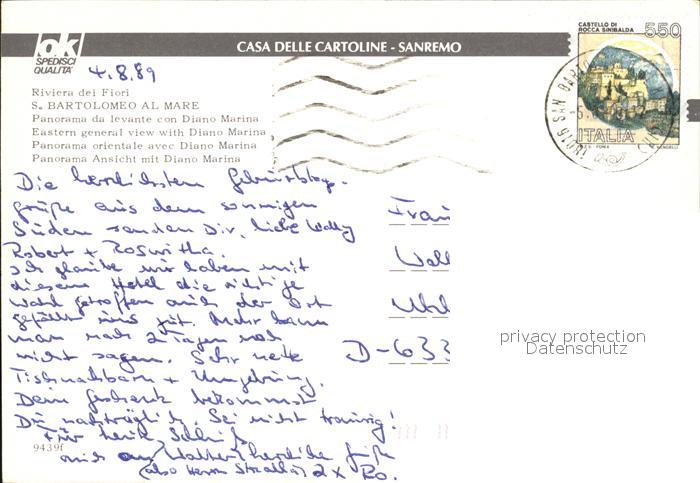 ok
SPEDISCI
QUALITA'
CASA DELLE CARTOLINE - SANREMO
CASTELLO DI
ROCCA SINIBALDA
550
ITALIA
18016 SAN BARTO
4.8.89
Riviera dei Fiori
S. BARTOLOMEO AL MARE
Panorama da levante con Diano Marina
Eastern general view with Diano Marina
Panorama orientale avec Diano Marina
Panorama Ansicht mit Diano Marina
Die herzlichsten Geburtstags-
grüße aus dem sonnigen
Süden senden Dir, liebe Wally
Robert + Roswitha.
Ich glaube wir haben mit
diesem Hotel die richtige
Wahl getroffen auch der Ort
gefällt uns gut. Mehr kann
man nach 2 Tagen noch
nicht sagen. Sehr nette
Tischnachbarn + Umgebung.
Dein Geschenk bekommst
Du nachträglich. Sei nicht traurig!
Für heute Schluß
auch an Walter herzliche Grüße
(also Herrn ) 2 x Ro.
Frau
Wall
Uhl
D-633
privacy protection
Datenschutz
9439f